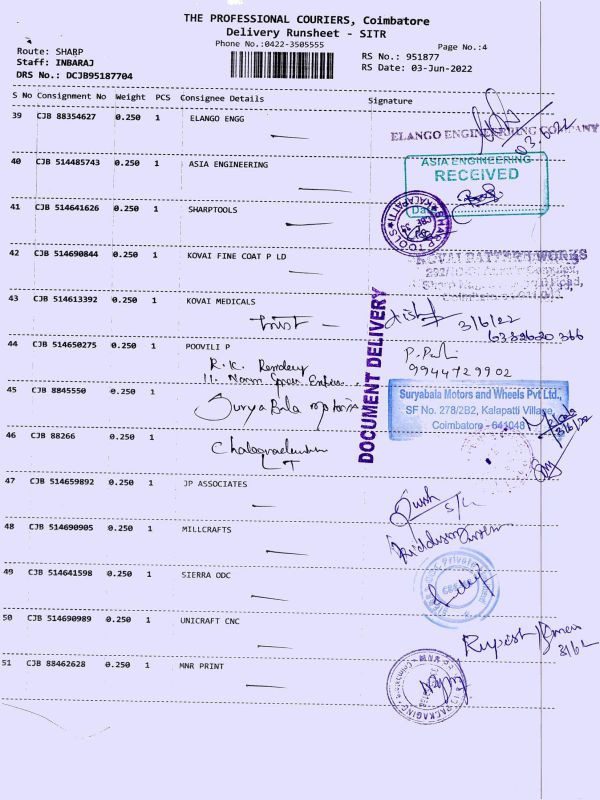 THE PROFESSIONAL COURIERS, Coimbatore
Delivery Runsheet - SITR
Phone No.:0422-3505555
Page No.:4
Route: SHARP
Staff: INBARAJ
DRS No.: DCJB95187704
RS No.: 951877
RS Date: 03-Jun-2022
S No Consignment No Weight PCS Consignee Details Signature
39 CJB 88354627 0.250 1 ELANGO ENGG
ELANGO ENGINEERING COMPANY
40 CJB 514485743 0.250 1 ASIA ENGINEERING
ASIA ENGINEERING
RECEIVED
Date
41 CJB 514641626 0.250 1 SHARPTOOLS
SHARP TOOLS
KALAPATTI
42 CJB 514690844 0.250 1 KOVAI FINE COAT P LD
KOVAI PATTERN WORKS
43 CJB 514613392 0.250 1 KOVAI MEDICALS
3/6/22
DOCUMENT DELIVERY
44 CJB 514650275 0.250 1 POOVILI P
R.K.
9944729902
45 CJB 8845550 0.250 1
Surya Bala motors
Suryabala Motors and Wheels Pvt Ltd.,
SF No. 278/2B2, Kalapatti Village,
Coimbatore - 641048
3/6/22
46 CJB 88266 0.250 1
47 CJB 514659892 0.250 1 JP ASSOCIATES
48 CJB 514690905 0.250 1 MILLCRAFTS
49 CJB 514641598 0.250 1 SIERRA ODC
Private
50 CJB 514690989 0.250 1 UNICRAFT CNC
Rupesh
51 CJB 88462628 0.250 1 MNR PRINT
PACKAGING